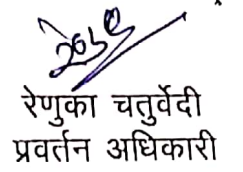 रेणुका चतुर्वेदी
प्रवर्तन अधिकारी